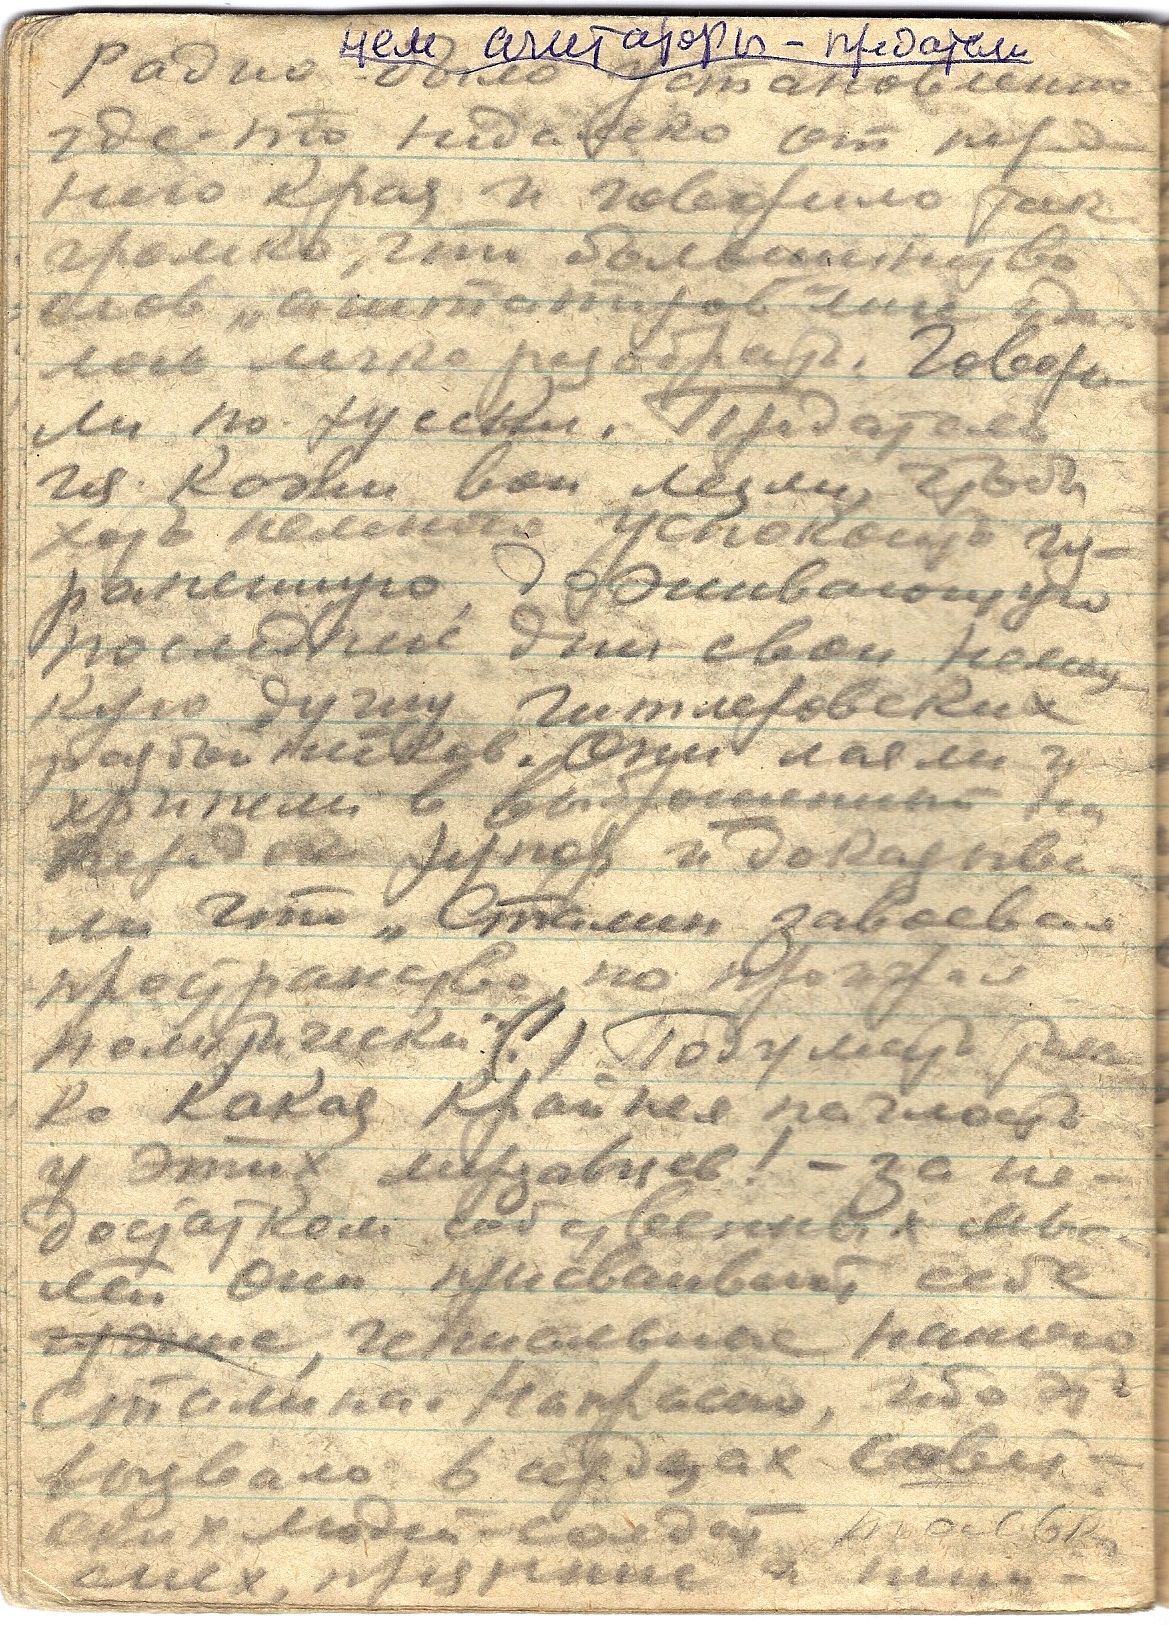 нем агитаторы - предатели
Радио было установлено
где-то недалеко от перед
него края и говорило так
громко, что большинство
слов „агитаторов" мне уда
лось легко разобрать. Говори
ли по русски. Предатели
из кожи вон лезли, чтобы
хоть немного успокоить
раненную, доживающую
последние дни свои
кую душу гитлеровских
разбойников. Они лаяли и
хрипели в выброшенный на
рупор и доказыва
ли что „Сталин завоевал
пространство, но проиграл
политически" (!) Подумать толь
ко какая крайняя наглость
у этих мерзавцев! - за не-
достатком собственных мыс
лей они присваивают себе
чужие, гениальные нашего
Сталина. Напрасно, ибо это
вызвало в сердцах совет-
ских людей-солдат
смех, презрение и